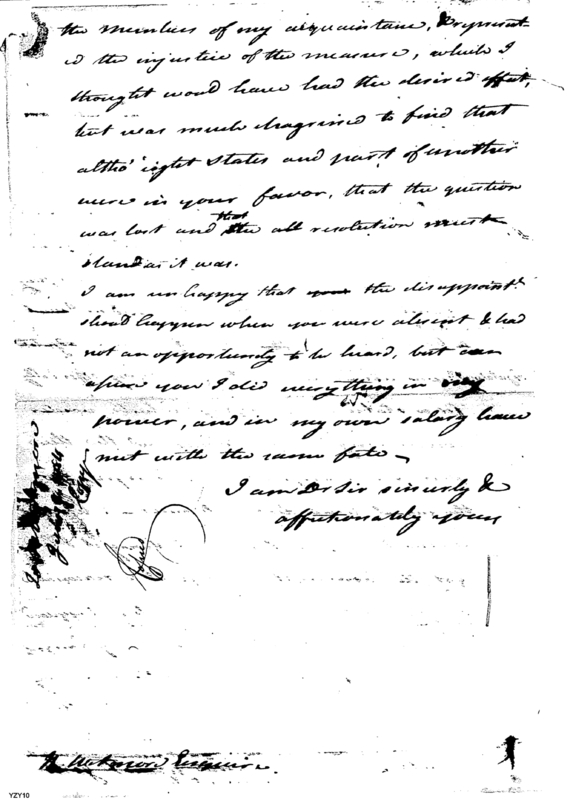 the Members of my acquaintance, & represent
ed the injustice of the measure, which I
thought would have had the desired effect,
but was much chagrined to find that
altho' eight States and part of another
were in your favor, that the question
was lost and that the resolution must
stand as it was.
I am unhappy that the disappointt
should happen when you were absent & had
not an opportunity to be heard, but can
assure you I did everything in my
power, and in my own salary have
met with the same fate –
I am Dr Sir sincerely &
affectionately yours
Copied
Esquire.
YZY10